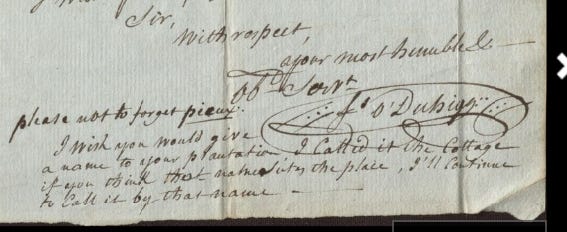 Sir,
With respect,
your most humble &
obt. Servt
Js. O'Duhigg
please not to forget
I Wish you would give
a name to your plantation I Called it the Cottage
if you think that name Suits the place, I'll Continue
to Call it by that name —